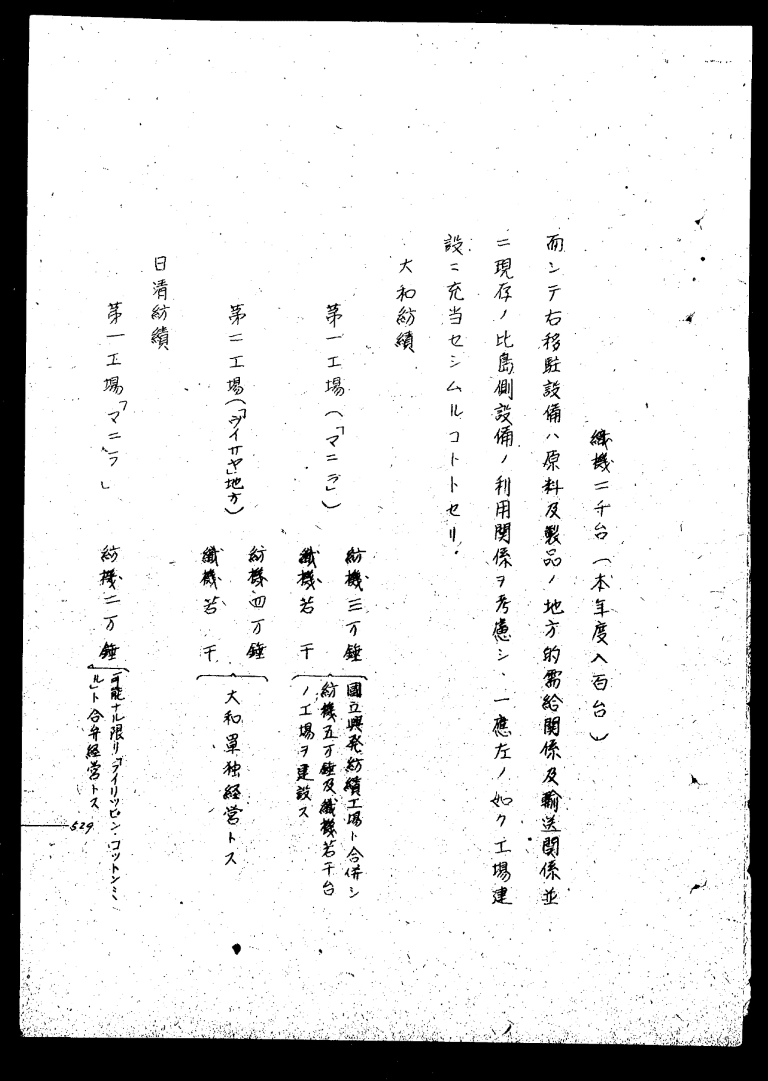 織機二千台(本年度八百台)
而シテ右移駐設備ハ原料及製品ノ地方的需給関係及輸送関係並
ニ現存ノ比島側設備ノ利用関係ヲ考慮シ、一應左ノ如ク工場建
設ニ充当セシムルコトトセリ.
大和紡績
第一工場(「マニラ」)
紡機三万錘
織機若干
國立興発紡績工場ト合併シ
紡機五万錘及織機若干台
ノ工場ヲ建設ス
第二工場(「ヴイサヤ」地方)
紡機四万錘
織機若干
大和單独経営トス
日清紡績
第一工場「マニラ」
紡機二万錘
可能ナル限リ「フイリツピン・コットンミ
ル」ト合弁経営トス
529